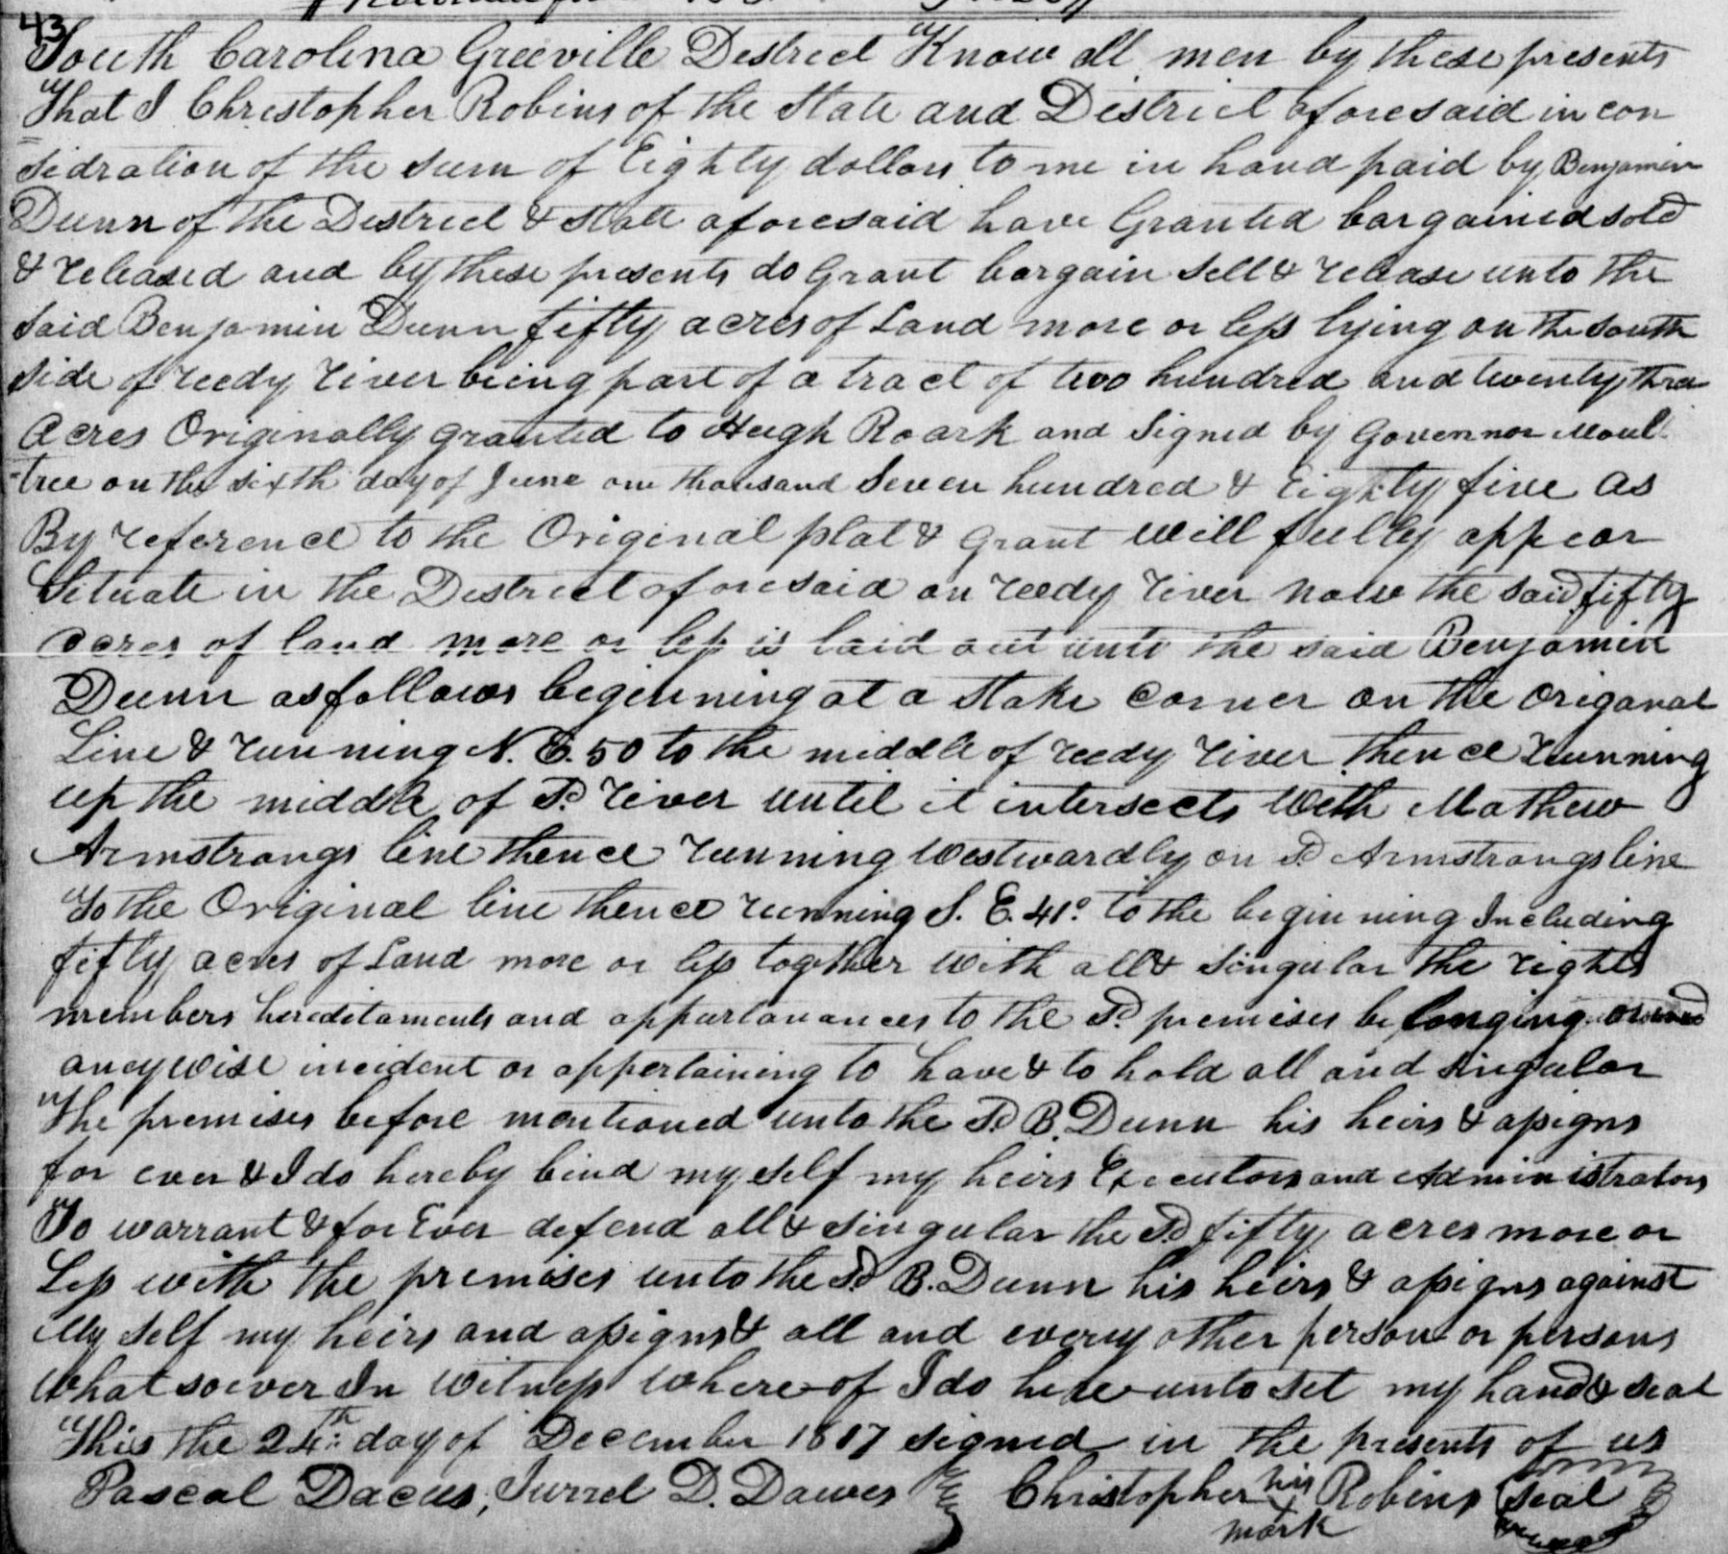 43
South Carolina Greeville District Know all men by these presents
That I Christopher Robins of the State and District aforesaid in con
sidration of the sum of Eighty dollars to me in hand paid by Benjamin
Dunn of the District & State aforesaid have Granted bargained sold
& released and by these presents do Grant bargain sell & release unto the
said Benjamin Dunn fifty acres of Land more or less lying on the south
side of reedy river being part of a tract of two hundred and twenty three
acres Originally granted to Hugh Roark and signed by Govennor Moul-
-tree on the sixth day of June one thousand seven hundred & Eighty five as
By reference to the Original plat & Grant will fully appear
Situate in the District aforesaid on reedy river now the said fifty
acres of land more or less is laid out unto the said Benjamin
Dunn as follows beginning at a Stake corner on the origanal
Line & running N. E. 50 to the middle of reedy river thence running
up the middle of Sd. river until it intersects with Mathew
Armstrongs line thence running Westwardly on Sd Armstrongs line
To the Original line thence running S. E. 41° to the beginning Including
fifty acres of Land more or less together with all & singular the rights
members hereditaments and appurtanances to the Sd. premises belonging or
aneywise incident or appertaining to have & to hold all and singular
The premises before mentioned unto the Sd. B. Dunn his heirs & assigns
for ever & I do hereby bind my self my heirs Executors and Administrators
To warrant & for Ever defend all & singular the Sd fifty acres more or
Less with the premises unto the Sd. B. Dunn his heirs & assigns against
My self my heirs and assigns & all and every other person or persons
Whatsoever In Witness where of I do here unto set my hand & seal
This the 24th. day of December 1817 signed in the presents of us
Pascal Dacus, Jurrel D. Dawes Christopher his x mark Robins Seal